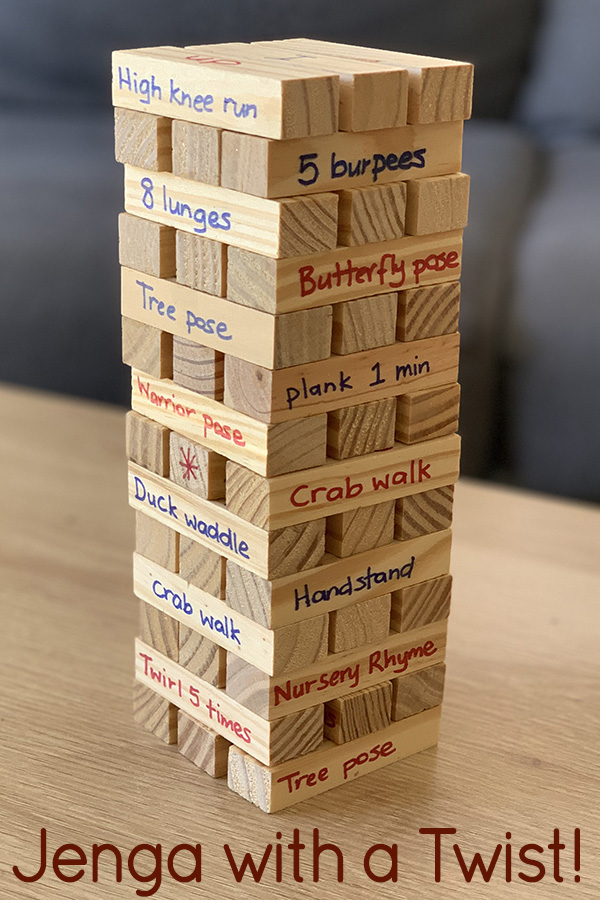 up 1
High knee run
5 burpees
8 lunges
Butterfly pose
Tree pose
plank 1 min
Warrior pose
Crab walk
Duck waddle
Handstand
Crab walk
Nursery Rhyme
Twirl 5 times
Tree pose
Jenga with a Twist!